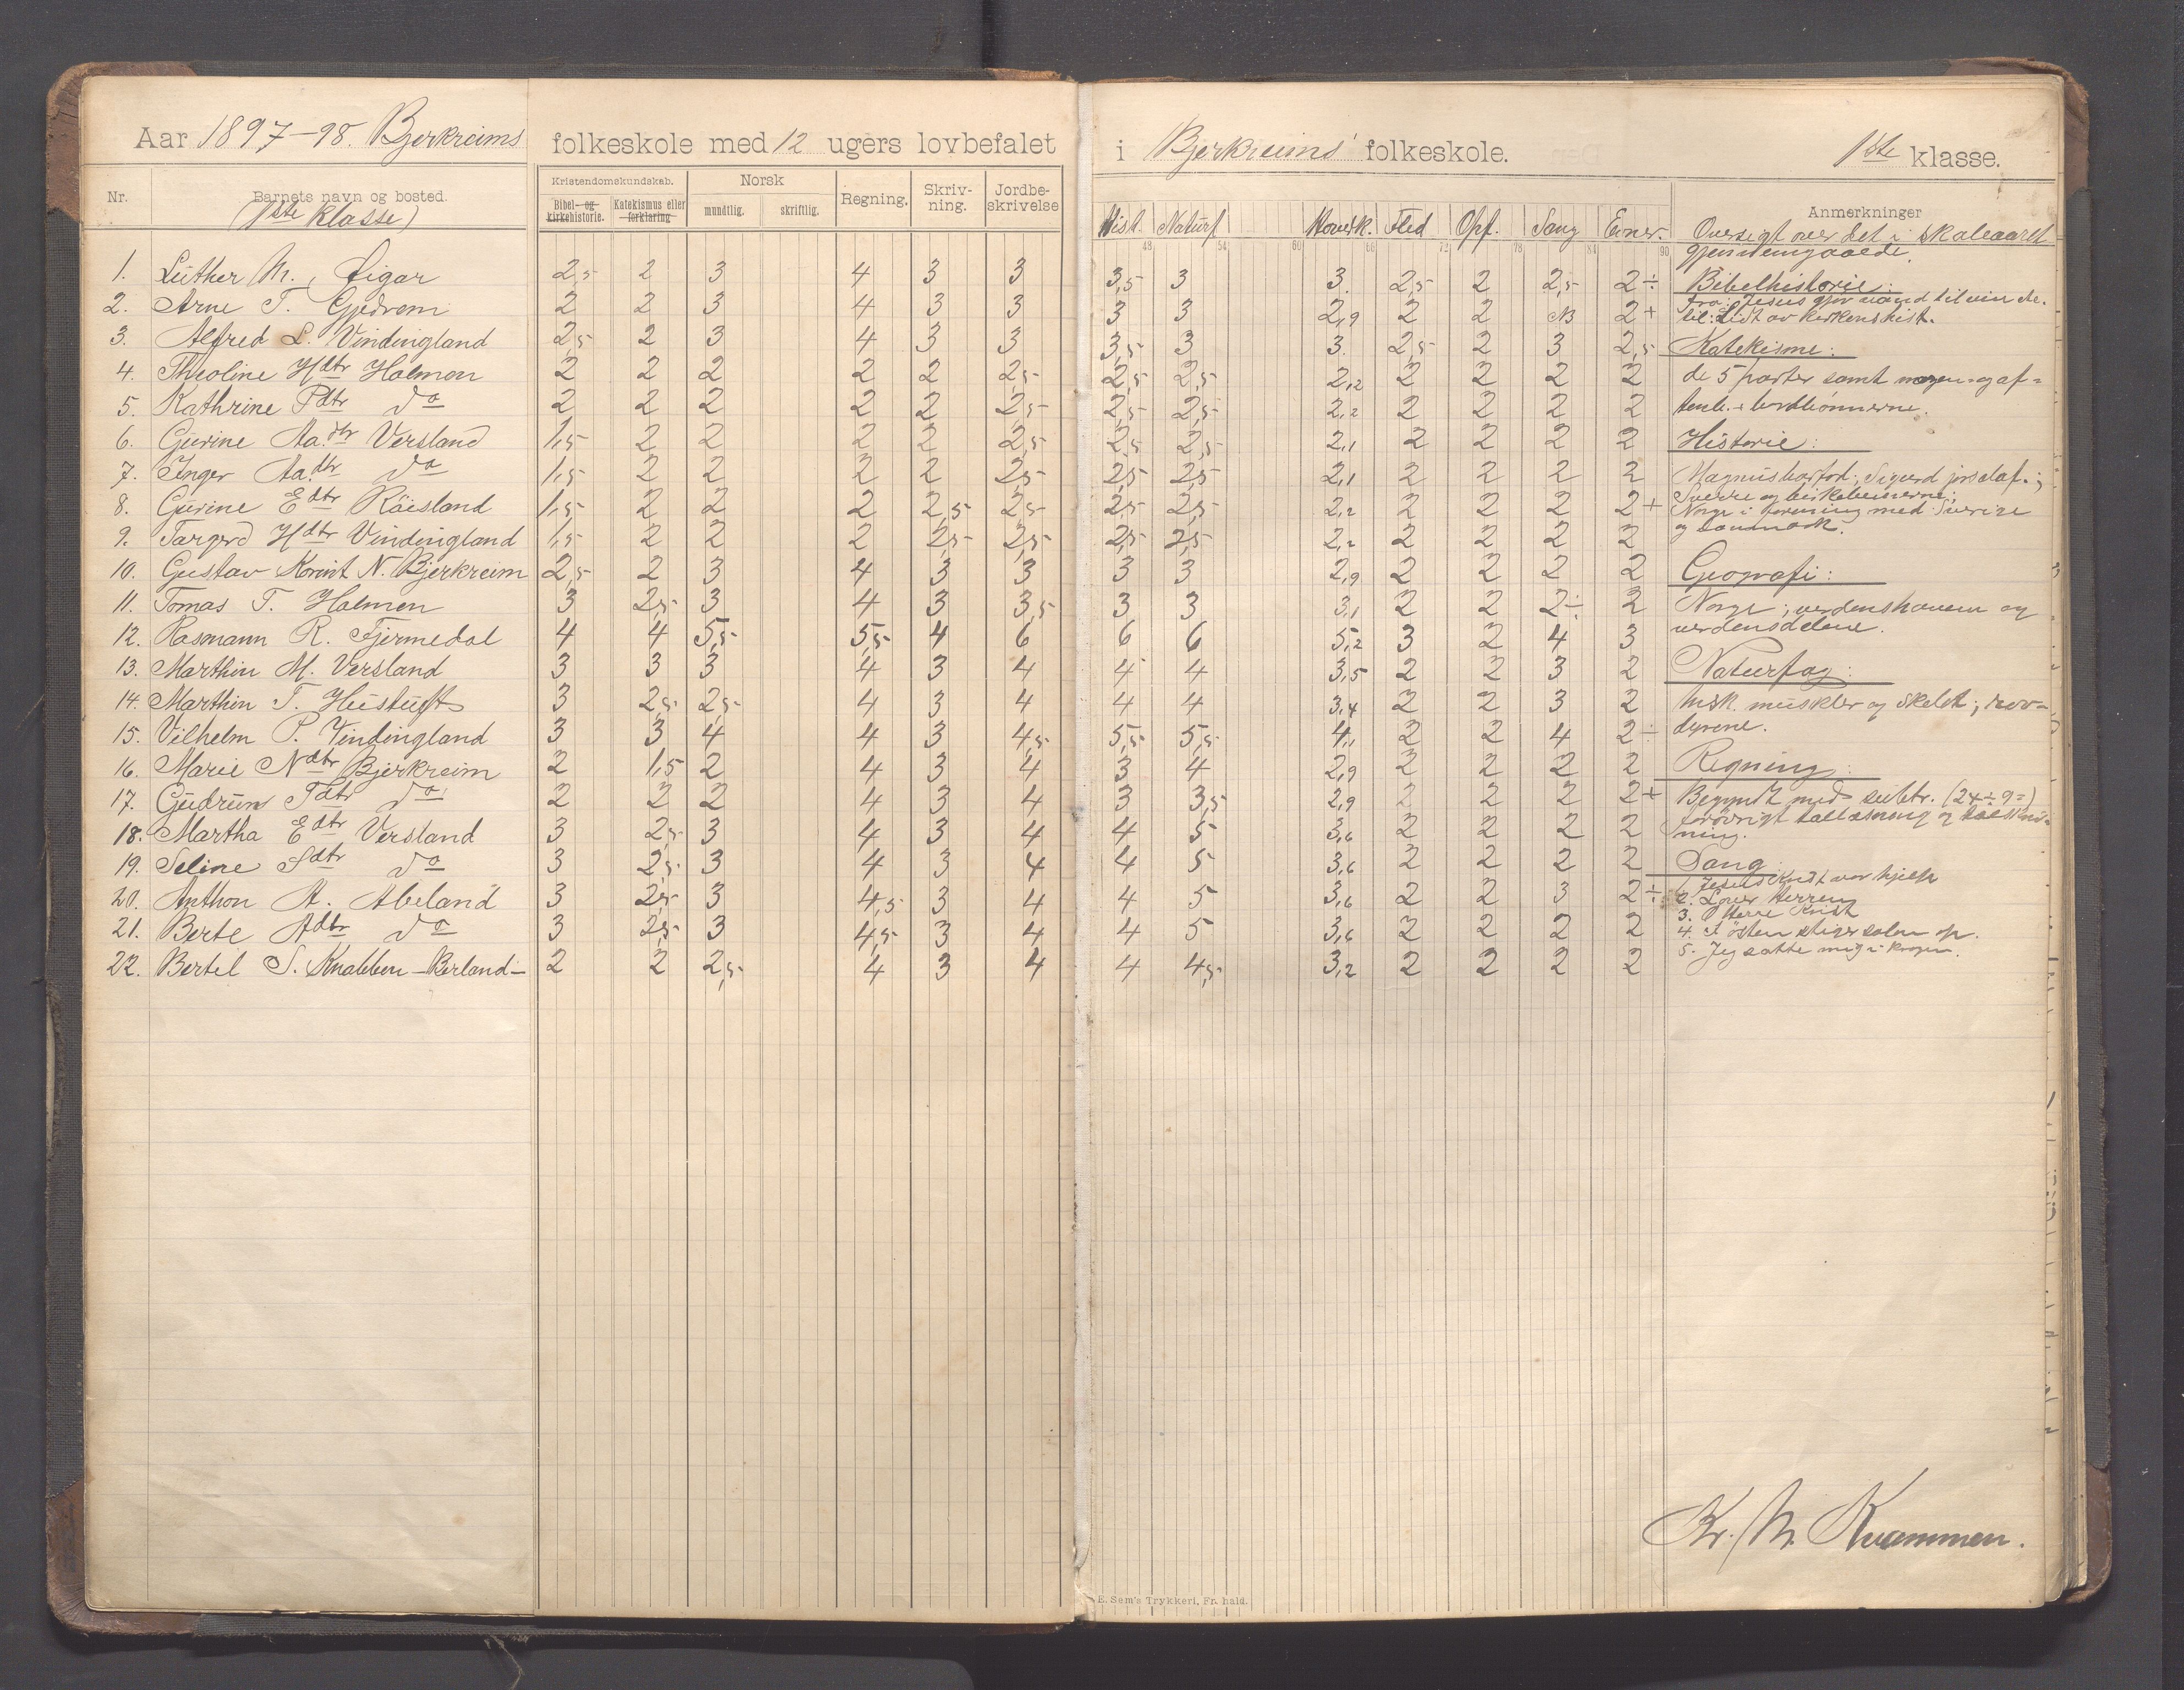 Aar 1897-98. Bjerkreims folkeskole med 12 ugers lovbefalet i Bjerkreims' folkeskole. 1ste klasse.
Nr. Barnets navn og bosted. Kristendomskundskab. Norsk Regning. Skriv-ning. Jordbe-skrivelse Hist. Naturf. Hovedk. Flid Opf. Sang Evner. Anmerkninger
(1ste klasse) Bibel- og kirkehistorie. Katekismus eller forklaring mundtlig. skriftlig.
48 54 60 66 72 78 84 90
1. Luther M. Eigar 2,5 2 3 4 3 3 3,5 3 3. 2,5 2 2,5 2÷
2. Arne T. Gjedrem 2 2 3 4 3 3 3 3 2,9 2 2 N3 2+
3. Alfred L. Vindingland 2,5 2 3 4 3 3 3,5 3 3. 2,5 2 3 2,5
4. Theoline Hdtr Holmen 2 2 2 2 2 2,5 2,5 2,5 2,2 2 2 2 2
5. Kathrine Pdtr do 2 2 2 2 2 2,5 2,5 2,5 2,2 2 2 2 2
6. Gurine Aa.dtr Versland 1,5 2 2 2 2 2,5 2,5 2,5 2,1 2 2 2 2
7. Inger Aa.dtr do 1,5 2 2 2 2 2,5 2,5 2,5 2,1 2 2 2 2
8. Gurine Edtr Röisland 1,5 2 2 2 2,5 2,5 2,5 2,5 2,2 2 2 2 2+
9. Targerd Hdtr Vindingland 1,5 2 2 2 2,5 2,5 2,5 2,5 2,2 2 2 2 2
10. Gustav Kornt N. Bjerkreim 2,5 2 3 4 3 3 3 3 2,9 2 2 2 2
11. Tomas T. Holmen 3 2,5 3 4 3 3,5 3 3 3,1 2 2 2÷ 2
12. Rasmann R. Fjermedal 4 4 5,5 5,5 4 6 6 6 5,2 3 2 4 3
13. Marthin M. Versland 3 3 3 4 3 4 4 4 3,5 2 2 3 2
14. Marthin T. Hustuft 3 2,5 2,5 4 3 4 4 4 3,4 2 2 3 2
15. Vilhelm P. Vindingland 3 3 4 4 3 4,5 5,5 5,5 4,1 2 2 4 2÷
16. Marie Ndtr Bjerkreim 2 1,5 2 4 3 4 3 4 2,9 2 2 2 2
17. Gudrun Tdtr do 2 2 2 4 3 4 3 3,5 2,9 2 2 2 2+
18. Martha Edtr Versland 3 2,5 3 4 3 4 4 5 3,6 2 2 2 2
19. Seline Sdtr do 3 2,5 3 4 3 4 4 5 3,6 2 2 2 2
20. Anthon A. Abeland 3 2,5 3 4,5 3 4 4 5 3,6 2 2 3 2÷
21. Berte Adtr do 3 2,5 3 4,5 3 4 4 5 3,6 2 2 2 2
22. Bertel S. Knabben-Berland- 2 2 2,5 4 3 4 4 4,5 3,2 2 2 2 2
Oversigt over det i skoleaaret
gjennemgaaede.
Bibelhistorie:
fra: Jesus gjør vand til vin
til: Lidt av kirkens hist.
Katekisme:
de 5 parter samt morgen- og af-
tenb. + bordbønnerne.
Historie:
Magnus barfod; Sigurd jorsalaf.;
Sverre og birkebeinerne;
Norge i forening med Sverige
og Danmark.
Geografi:
Norge; verdenshavene og
verdensdelene.
Naturfag:
Msk. muskler og skelet; rov-
dyrene.
Regning:
Begyndt med subtr. (24÷9=)
forøvrigt tallæsning og talskriv-
ning.
Sang:
1. Jesus Krist vor hjelp
2. Lover Herren
3. O Herre Krist
4. I østen stiger solen op.
5. Jeg satte mig i krogen.
Kr. M. Kvammen.
E. Sem's Trykkeri, Fr.hald.